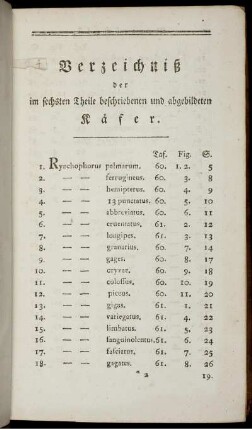 Verzeichniß
der
im sechsten Theile beschriebenen und abgebildeten
Käfer.
Taf. Fig. S.
1. Rynchophorus palmarum, 60. 1. 2. 5
2. — — ferrugineus. 60. 3. 8
3. — — hemipterus. 60. 4. 9
4. — — 13 punctatus. 60. 5. 10
5. — — abbreviatus. 60. 6. 11
6. — — cruentatus, 61. 2. 12
7. — — longipes. 61. 3. 13
8. — — granarius, 60. 7. 14
9. — — gages. 60. 8. 17
10. — — oryzæ. 60. 9. 18
11. — — colossus, 60. 10. 19
12. — — piceus. 60. 11. 20
13. — — gigas. 61. 1. 21
14. — — variegatus, 61. 4. 22
15. — — limbatus. 61. 5. 23
16. — — sanguinolentus. 61. 6. 24
17. — — fasciatus. 61. 7. 25
18. — — gagatus, 61. 8. 26
* 2 19.